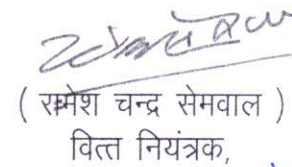 ( रमेश चन्द्र सेमवाल )
वित्त नियंत्रक,